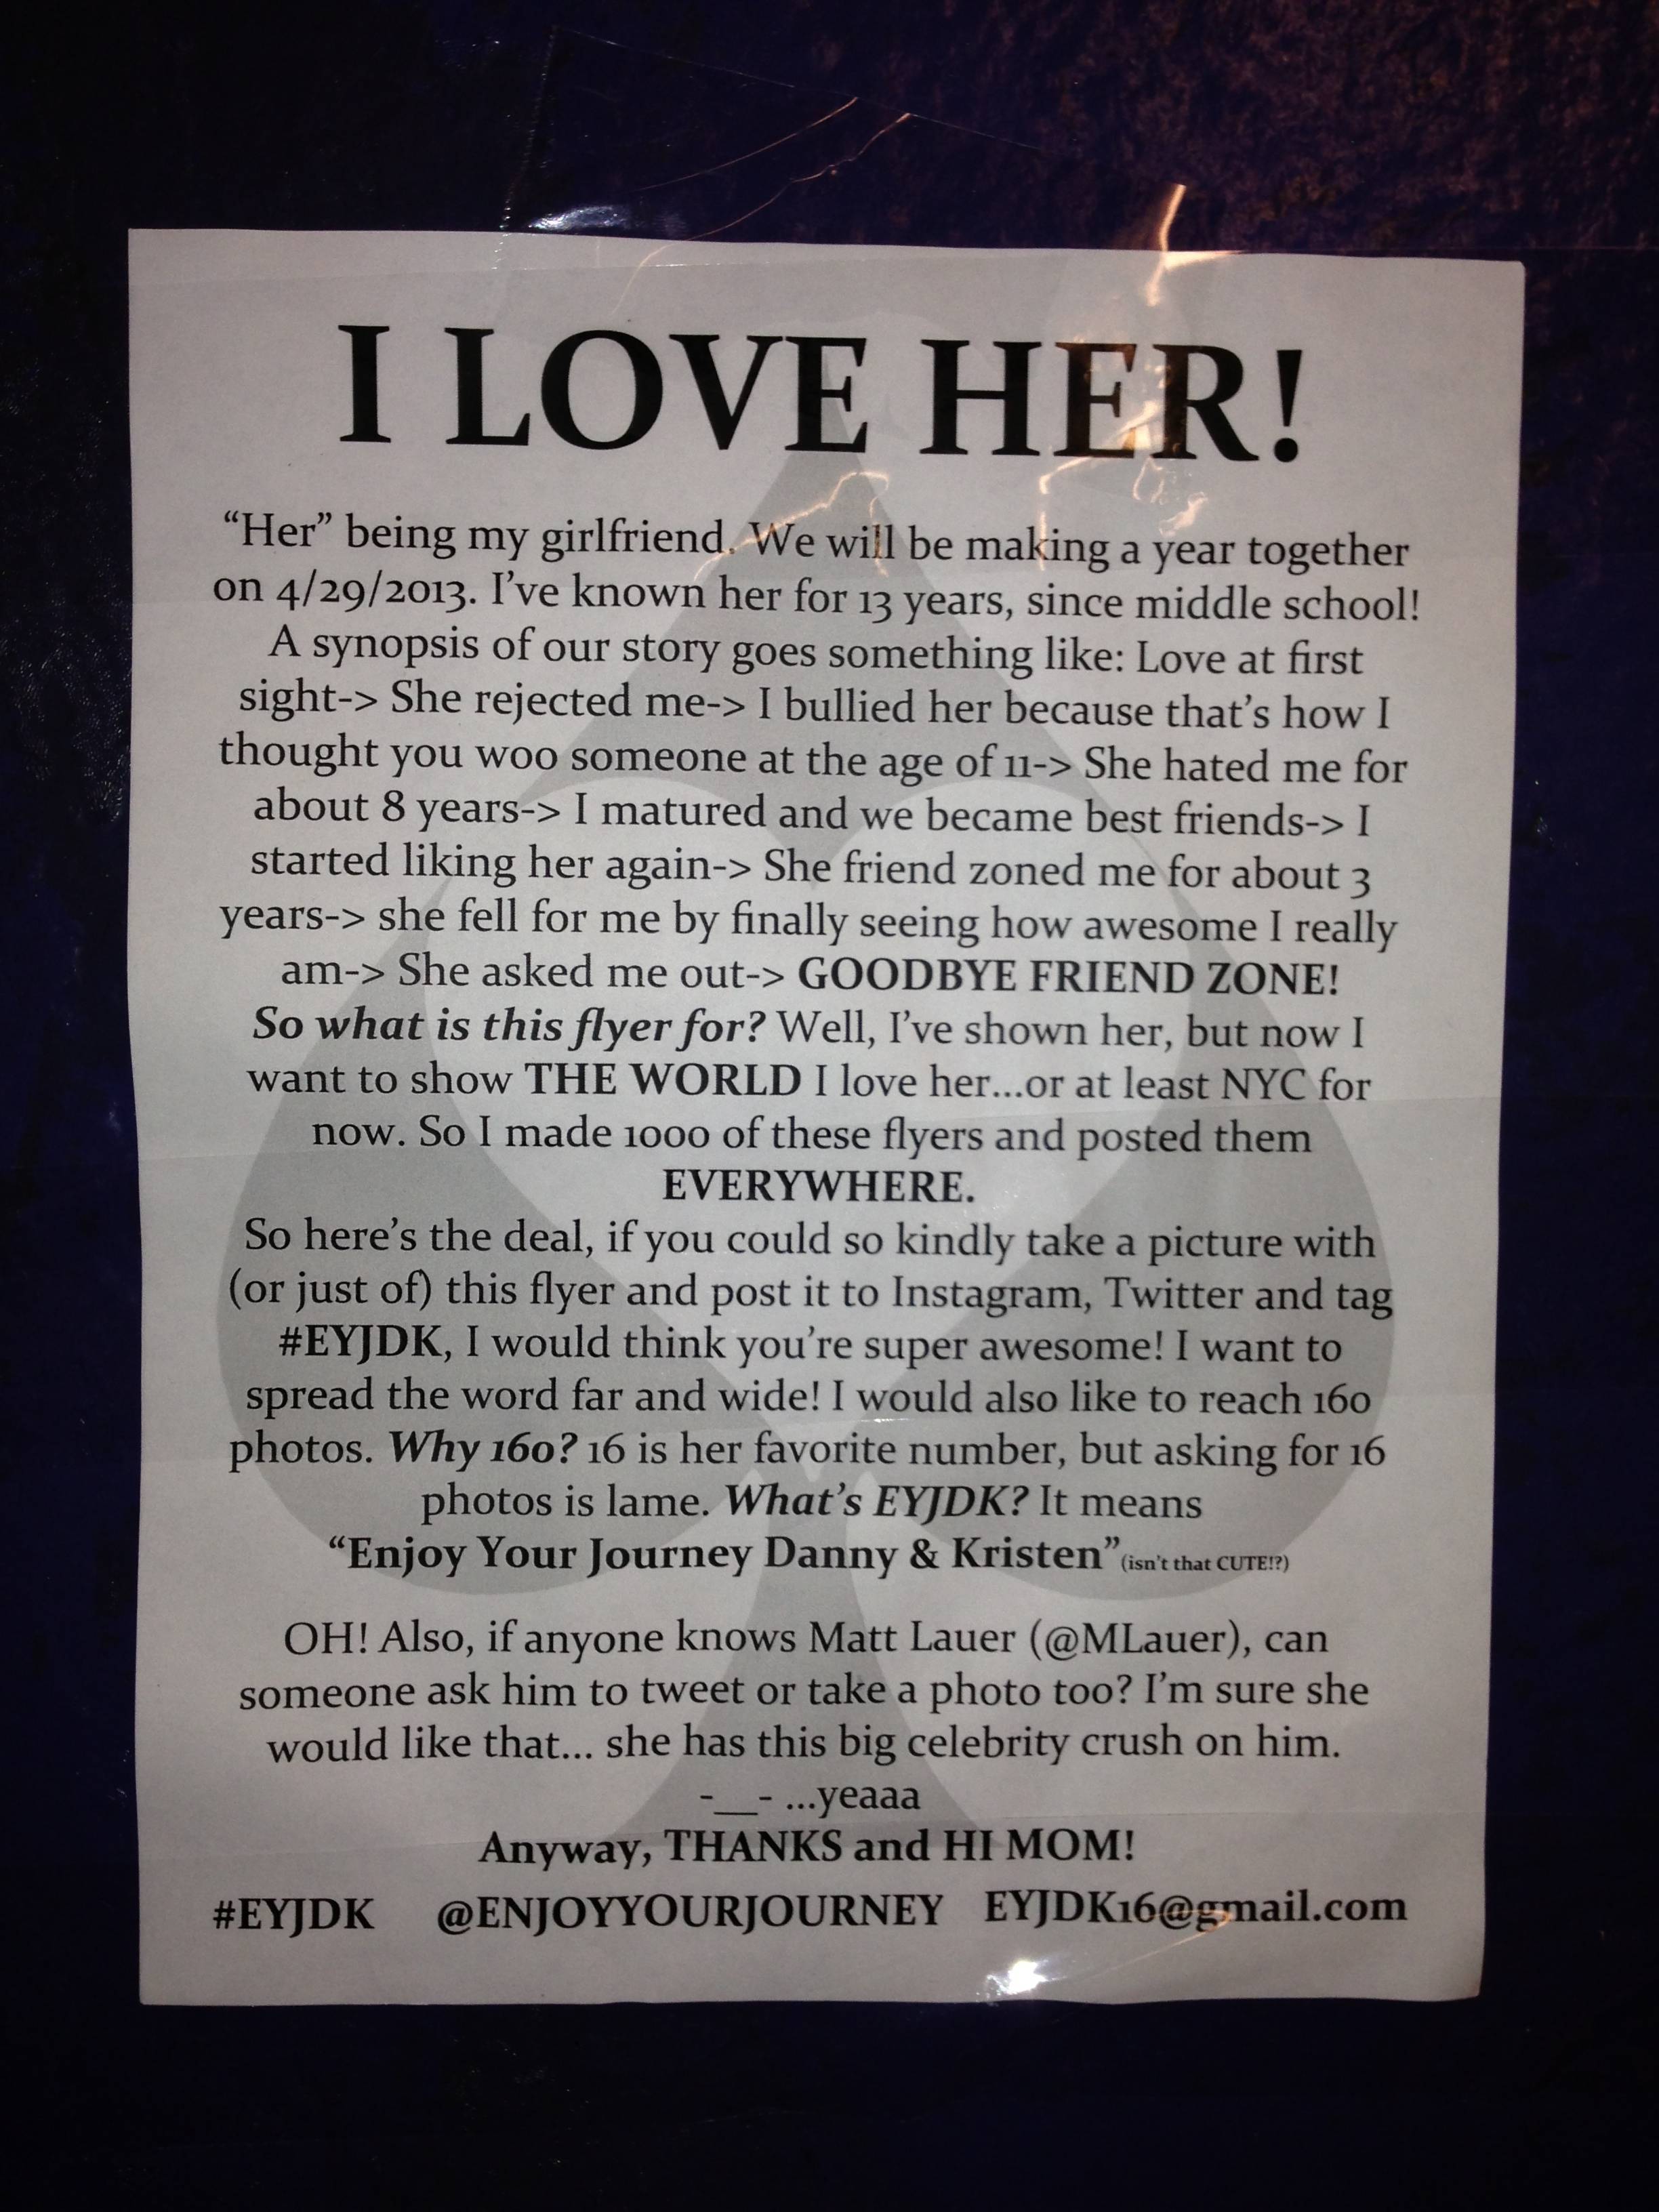 I LOVE HER!
“Her” being my girlfriend. We will be making a year together
on 4/29/2013. I’ve known her for 13 years, since middle school!
A synopsis of our story goes something like: Love at first
sight-> She rejected me-> I bullied her because that’s how I
thought you woo someone at the age of 11-> She hated me for
about 8 years-> I matured and we became best friends-> I
started liking her again-> She friend zoned me for about 3
years-> she fell for me by finally seeing how awesome I really
am-> She asked me out-> GOODBYE FRIEND ZONE!
So what is this flyer for? Well, I’ve shown her, but now I
want to show THE WORLD I love her...or at least NYC for
now. So I made 1000 of these flyers and posted them
EVERYWHERE.
So here’s the deal, if you could so kindly take a picture with
(or just of) this flyer and post it to Instagram, Twitter and tag
#EYJDK, I would think you’re super awesome! I want to
spread the word far and wide! I would also like to reach 160
photos. Why 160? 16 is her favorite number, but asking for 16
photos is lame. What’s EYJDK? It means
“Enjoy Your Journey Danny & Kristen”(isn’t that CUTE!?)
OH! Also, if anyone knows Matt Lauer (@MLauer), can
someone ask him to tweet or take a photo too? I’m sure she
would like that... she has this big celebrity crush on him.
-__- ...yeaaa
Anyway, THANKS and HI MOM!
#EYJDK @ENJOYYOURJOURNEY EYJDK16@gmail.com